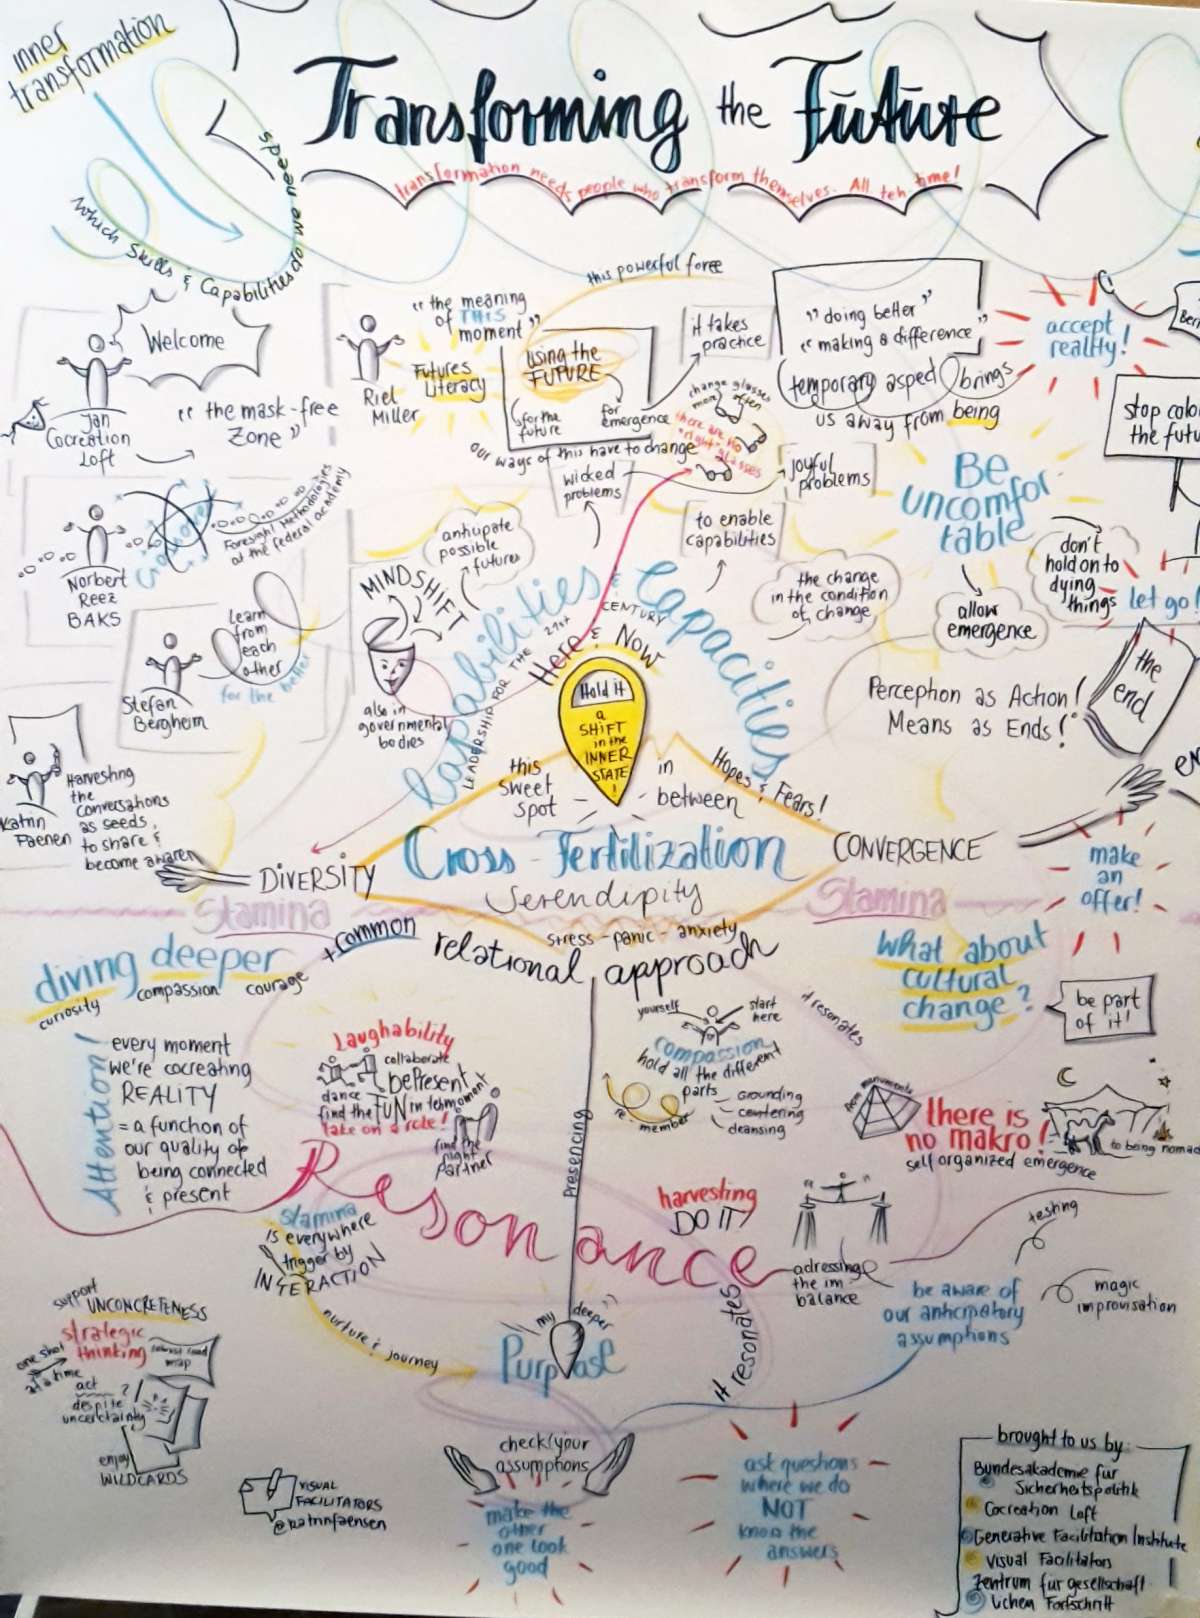 inner
transformation
Transforming the Future
transformation needs people who transform themselves. All teh time!
which Skills & Capabilities do we need
Welcome
Jan
Cocreation
Loft
"the mask-free
Zone"
Riel
Miller
"the meaning
of THIS
moment"
Futures
Literacy
using the
FUTURE
for the
future
for
emergence
our ways of this have to change
this powerful force
it takes
practice
"doing better"
"making a difference"
temporary asped brings
us away from being
change glasses
more often
there are no
"right" glasses
accept
reality!
stop colo
the futu
wicked
problems
joyful
problems
to enable
capabilities
Be
uncomfor-
table
don't
hold on to
dying
things
let go!
allow
emergence
Norbert
Reez
BAKS
Foresight Methodologies
at the federal academy
anticipate
possible
futures
MINDSHIFT
also in
governmental
bodies
the change
in the condition
of change
Stefan
Bergheim
Learn
from
each
other
for the better
Capabilities & Capacities
LEADERSHIP FOR THE 21st CENTURY
Here & Now
Hold it
a
SHiFT
in the
INNER
STATE
!
this
sweet
spot
in
between
Hopes & Fears!
Perception as Action!
Means as Ends!
the
end
Katrin
Faenen
Harvesting
the
conversations
as seeds,
to share &
become awaren
DiVERSITY
Cross-Fertilization
Serendipity
CONVERGENCE
make
an
offer!
Stamina
Stamina
stress - panic - anxiety
diving deeper
+common
curiosity compassion courage
relational approach
What about
cultural
change?
be part
of it!
Attention!
every moment
we're cocreating
REALITY
= a function of
our quality of
being connected
& present
Laughability
collaborate
dance
bePresent
find the FUN in teh moment
take on a role!
find the
right
partner
yourself
start
here
compassion
hold all the different
parts
grounding
centering
cleansing
re-member
Presencing
it resonates
from monuments
there is
no makro!
self organized emergence
to being nomad
Resonance
harvesting
DO IT!
Stamina
is everywhere
trigger by
INTERACTION
adressing
the im
balance
testing
be aware of
our anticipatory
assumptions
magic
improvisation
support
UNCONCRETENESS
strategic
thinking
map
one shot
at a time
act
despite
uncertainty
?!
enjoy
WILDCARDS
nurture & journey
my deeper
Purpose
it resonates
check your
assumptions
make the
other
one look
good
ask questions
where we do
NOT
know the
answers
VISUAL
FACILITATORS
@katrinfaensen
brought to us by:
Bundesakademie für
Sicherheitspolitik
Cocreation Loft
Generative Facilitation Institute
Visual Facilitators
Zentrum für gesellschaft
lichen Fortschritt